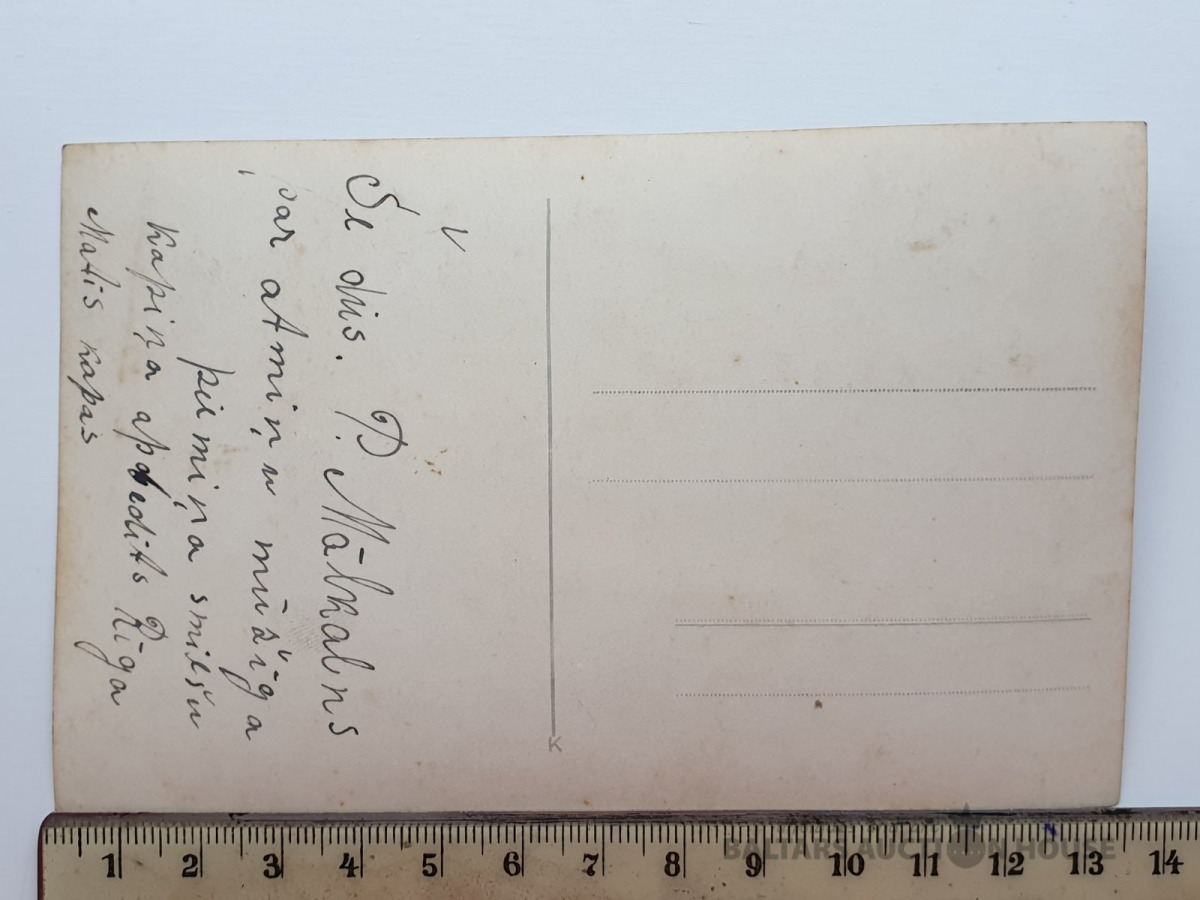 Še dus. P. Mālkalns
par atmiņu mūžīga
piemiņa smilšu
Kapiņa apbedits Rīga
Matis kapas
K
1 2 3 4 5 6 7 8 9 10 11 12 13 14
BALTARS AUCTION HOUSE